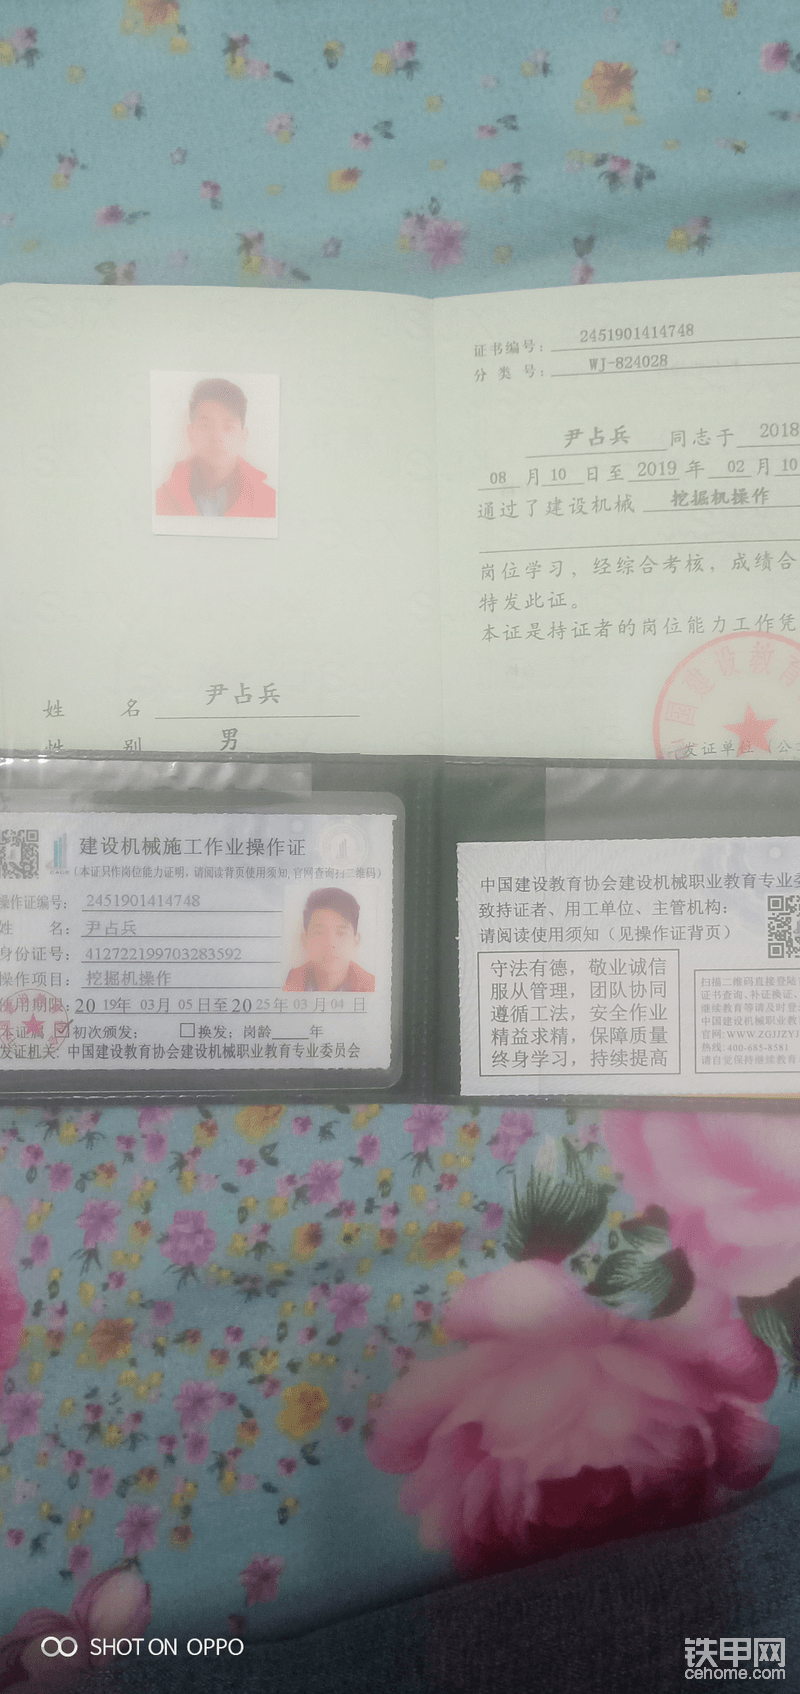 证书编号： 2451901414748
分 类 号： WJ-824028
尹占兵 同志于 2018
08 月 10 日至 2019 年 02 月 10
通过了建设机械 挖掘机操作
岗位学习，经综合考核，成绩合
特发此证。
本证是持证者的岗位能力工作凭
姓 名 尹占兵
性 别 男
建设教育
发证单位（公
建设机械施工作业操作证
（本证只作岗位能力证明，请阅读背页使用须知，官网查询扫二维码）
操作证编号： 2451901414748
姓 名： 尹占兵
身份证号： 412722199703283592
操作项目： 挖掘机操作
使用期限： 2019年 03月 05日至2025年 03月 04日
本证属 ☑初次颁发； □换发；岗龄 年
发证机关：中国建设教育协会建设机械职业教育专业委员会
中国建设教育协会建设机械职业教育专业委
致持证者、用工单位、主管机构：
请阅读使用须知（见操作证背页）
守法有德，敬业诚信
服从管理，团队协同
遵循工法，安全作业
精益求精，保障质量
终身学习，持续提高
扫描二维码直接登陆
证书查询、补证换证、
继续教育等请及时登
中国建设机械职业教
官网:WWW.ZGJJZYJ
热线:400-685-8581
请自觉保持继续教育
SHOT ON OPPO
铁甲网
cehome.com